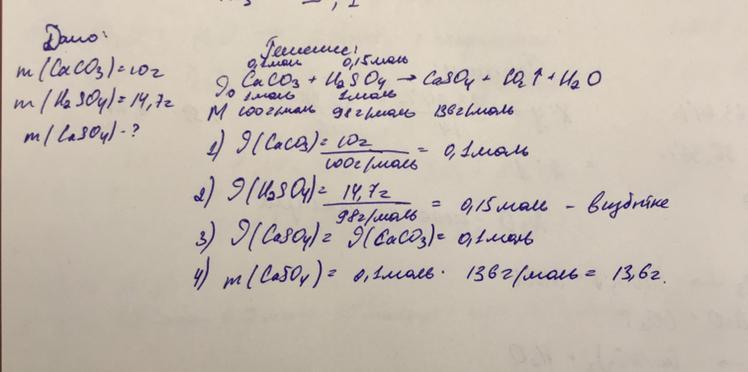 Дано:
m(CaCO3)=10г
m(H2SO4)=14,7г
m(CaSO4)-?
Решение:
0,1моль 0,15моль
CaCO3 + H2SO4 → CaSO4 + CO2↑ + H2O
1моль 1моль
M 100г/моль 98г/моль 136г/моль
1) ϑ(CaCO3)= 10г / 100г/моль = 0,1моль
2) ϑ(H2SO4)= 14,7г / 98г/моль = 0,15моль - в избытке
3) ϑ(CaSO4)= ϑ(CaCO3)= 0,1моль
4) m(CaSO4)= 0,1моль · 136г/моль = 13,6г.